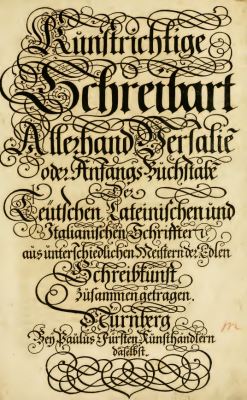 Kunstrichtige
Schreibart
Allerhand Versalie
oder Anfangs Buchstabē
Der
Teütschen Lateinischen und
Italianischen Schrifften
aus unterschiedlichen Meistern der Edlen
Schreibkunst
zusammen getragen.
Nürnberg
Bey Paulus Fürsten Kunsthandlern
daselbst.